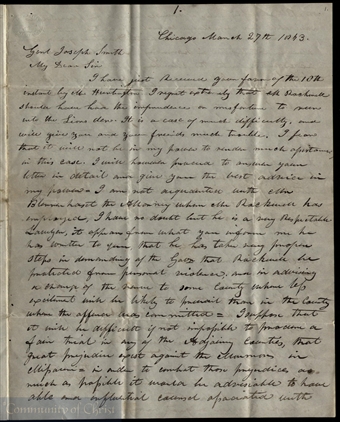 1.
Chicago March 27th 1843.
Genl Joseph Smith
My Dear Sir
I have just Received your favor of the 10th
instant by Mr Huntington I regret extremely that Mr Rockwell
should have had the imprudence or misfortune to run
into the Lions den. It is a case of much difficulty, and
will give you and your friends much trouble. I fear
that it will not be in my power to render much assistance
in this case. I will however proceed to answer your
letter in detail and give you the best advice in
my power = I am not acquainted with Mr
the Attorney whom Mr Rockwell has
employed, I have no doubt but he is a very Respectable
Lawyer, it appears from what you inform me he
has written to you that he has taken very proper
steps in demanding of the Gov that Rockwell be
protected from personal violence. and in advising
a change of the venue to some County where less
excitement will be likely to prevail than in the County
where the offence was committed = I suppose that
it will be difficult if not impossible to procure a
fair trial in any of the adjoining Counties, that
great prejudice exist against the Mormons in
Missouri = in order to combat those prejudices as
much as possible it would be advisable to have
able and influential counsel associated with
Community of Christ